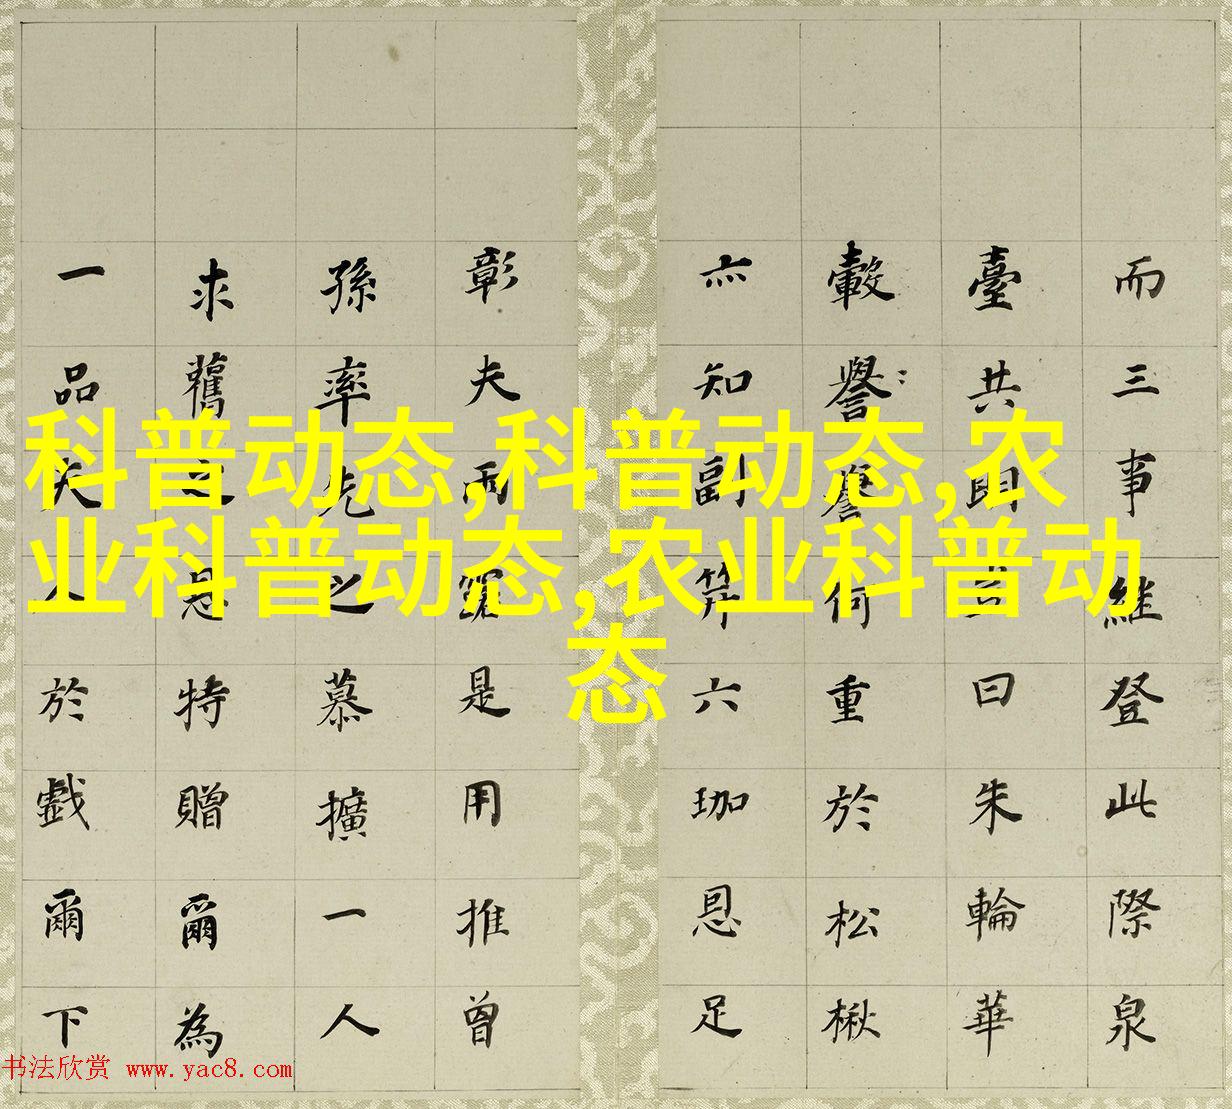 而三事維登此際泉
臺共明曰朱輪華
轂譽何重於松楸
亦知副笄六珈恩足
彰夫雨露是用推曾
孫率先之慕擴一人
求舊之恩特贈爾為
一品夫人於戲爾下
科普动态,科普动态,农
业科普动态,农业科普动
态
书法欣赏 www.yac8.com